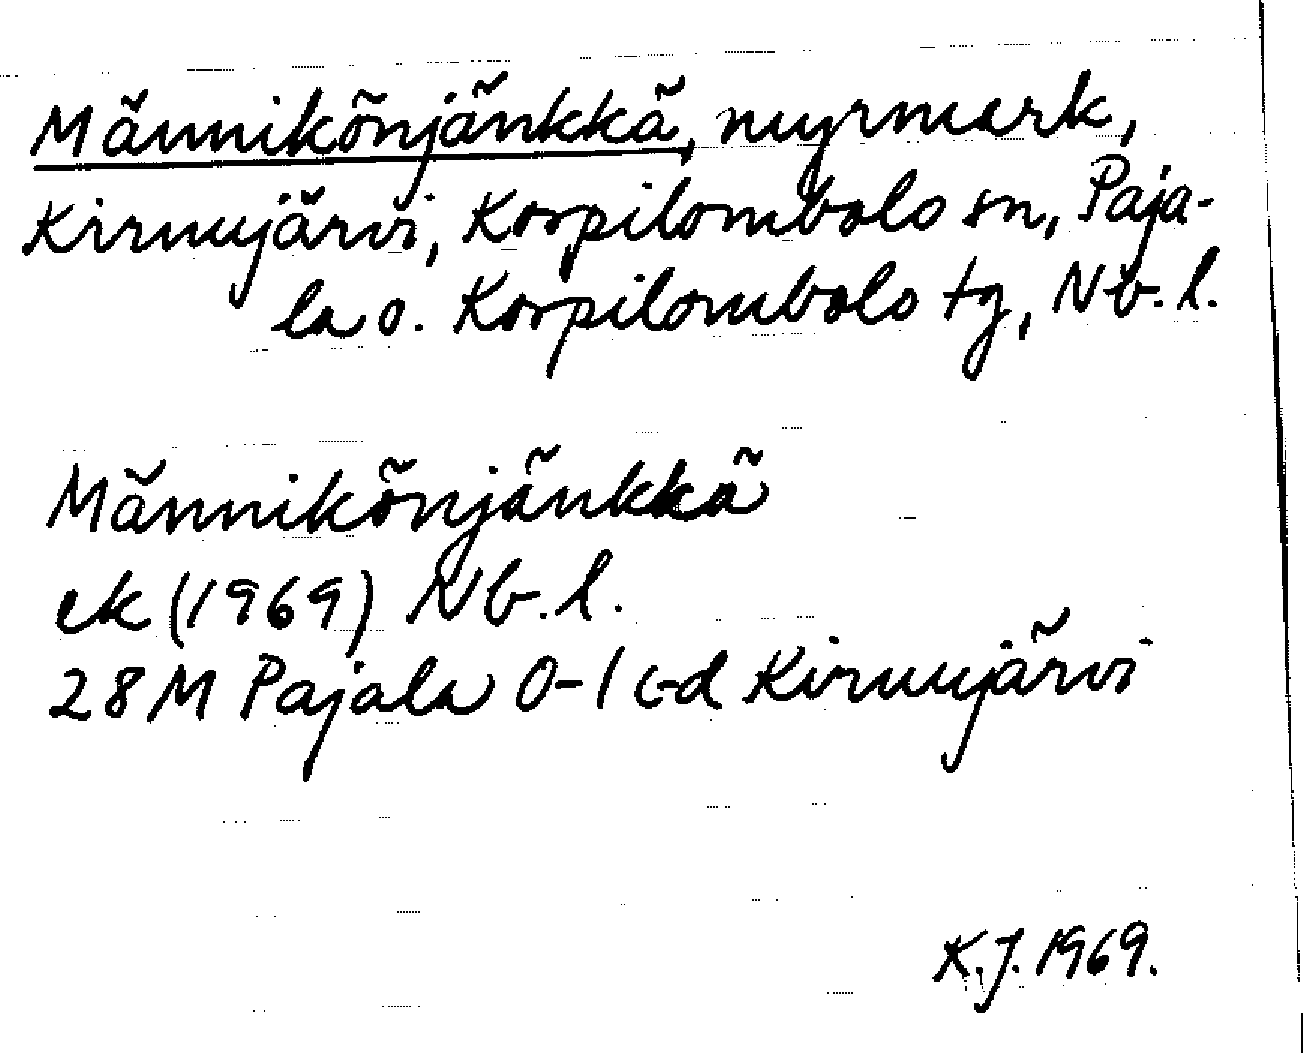 Männikönjänkkä, myrmark,
Kirnujärvi, Korpilombolo sn, Paja-
la o. Korpilombolo tg, Nb. l.
Männikönjänkkä
ek (1969) Nb. l.
28 M Pajala 0-1 c-d Kirnujärvi
K.J. 1969.